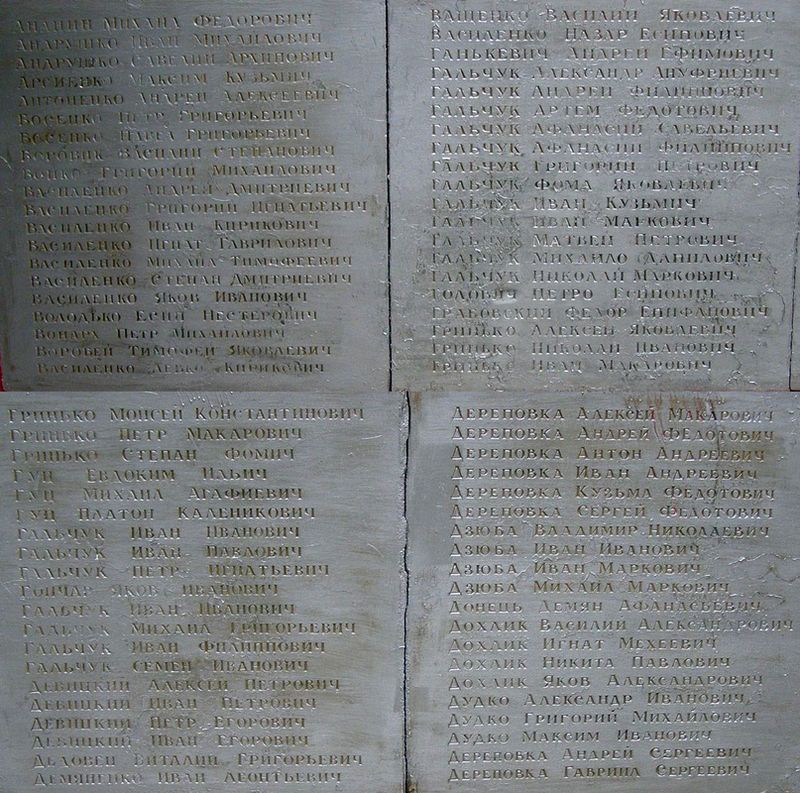 Ананин Михаил Федорович
Андрушко Иван Михайлович
Андрушко Савелий Архипович
Арсиенко Максим Кузьмич
Антоненко Андрей Алексеевич
Босенко Петр Григорьевич
Босенко Павел Григорьевич
Боровик Василий Степанович
Бойко Григорий Михайлович
Василенко Андрей Дмитриевич
Василенко Григорий Игнатьевич
Василенко Иван Кирикович
Василенко Игнат Гаврилович
Василенко Михаил Тимофеевич
Василенко Степан Дмитриевич
Василенко Яков Иванович
Володько Есип Нестерович
Вонарх Петр Михайлович
Воробей Тимофей Яковлевич
Василенко Левко Кирикович
Ващенко Василий Яковлевич
Василенко Назар Есипович
Ганькевич Андрей Ефимович
Гальчук Александр Ануфриевич
Гальчук Андрей Филиппович
Гальчук Артем Федотович
Гальчук Афанасий Савельевич
Гальчук Афанасий Филиппович
Гальчук Григорий Петрович
Гальчук Фома Яковлевич
Гальчук Иван Кузьмич
Гальчук Иван Маркович
Гальчук Матвей Петрович
Гальчук Михайло Данилович
Гальчук Николай Маркович
Головач Петро Есипович
Грабовский Федор Епифанович
Гринько Алексей Яковлевич
Гринько Николай Иванович
Гринько Иван Макарович
Гринько Моисей Константинович
Гринько Петр Макарович
Гринько Степан Фомич
Гуц Евдоким Ильич
Гуц Михаил Агафиевич
Гуц Платон Каленикович
Гальчук Иван Иванович
Гальчук Иван Павлович
Гальчук Петр Игнатьевич
Гончар Яков Иванович
Гальчук Иван Иванович
Гальчук Михаил Григорьевич
Гальчук Иван Филиппович
Гальчук Семен Иванович
Девицкий Алексей Петрович
Девицкий Иван Петрович
Девицкий Петр Егорович
Девицкий Иван Егорович
Деловец Виталий Григорьевич
Демяненко Иван Леонтьевич
Дереповка Алексей Макарович
Дереповка Андрей Федотович
Дереповка Антон Андреевич
Дереповка Иван Андреевич
Дереповка Кузьма Федотович
Дереповка Сергей Федотович
Дзюба Владимир Николаевич
Дзюба Иван Иванович
Дзюба Иван Маркович
Дзюба Михаил Маркович
Донець Демян Афанасьевич
Дохлик Василий Александрович
Дохлик Игнат Мехеевич
Дохлик Никита Павлович
Дохлик Яков Александрович
Дудко Александр Иванович
Дудко Григорий Михайлович
Дудко Максим Иванович
Дереповка Андрей Сергеевич
Дереповка Гаврила Сергеевич